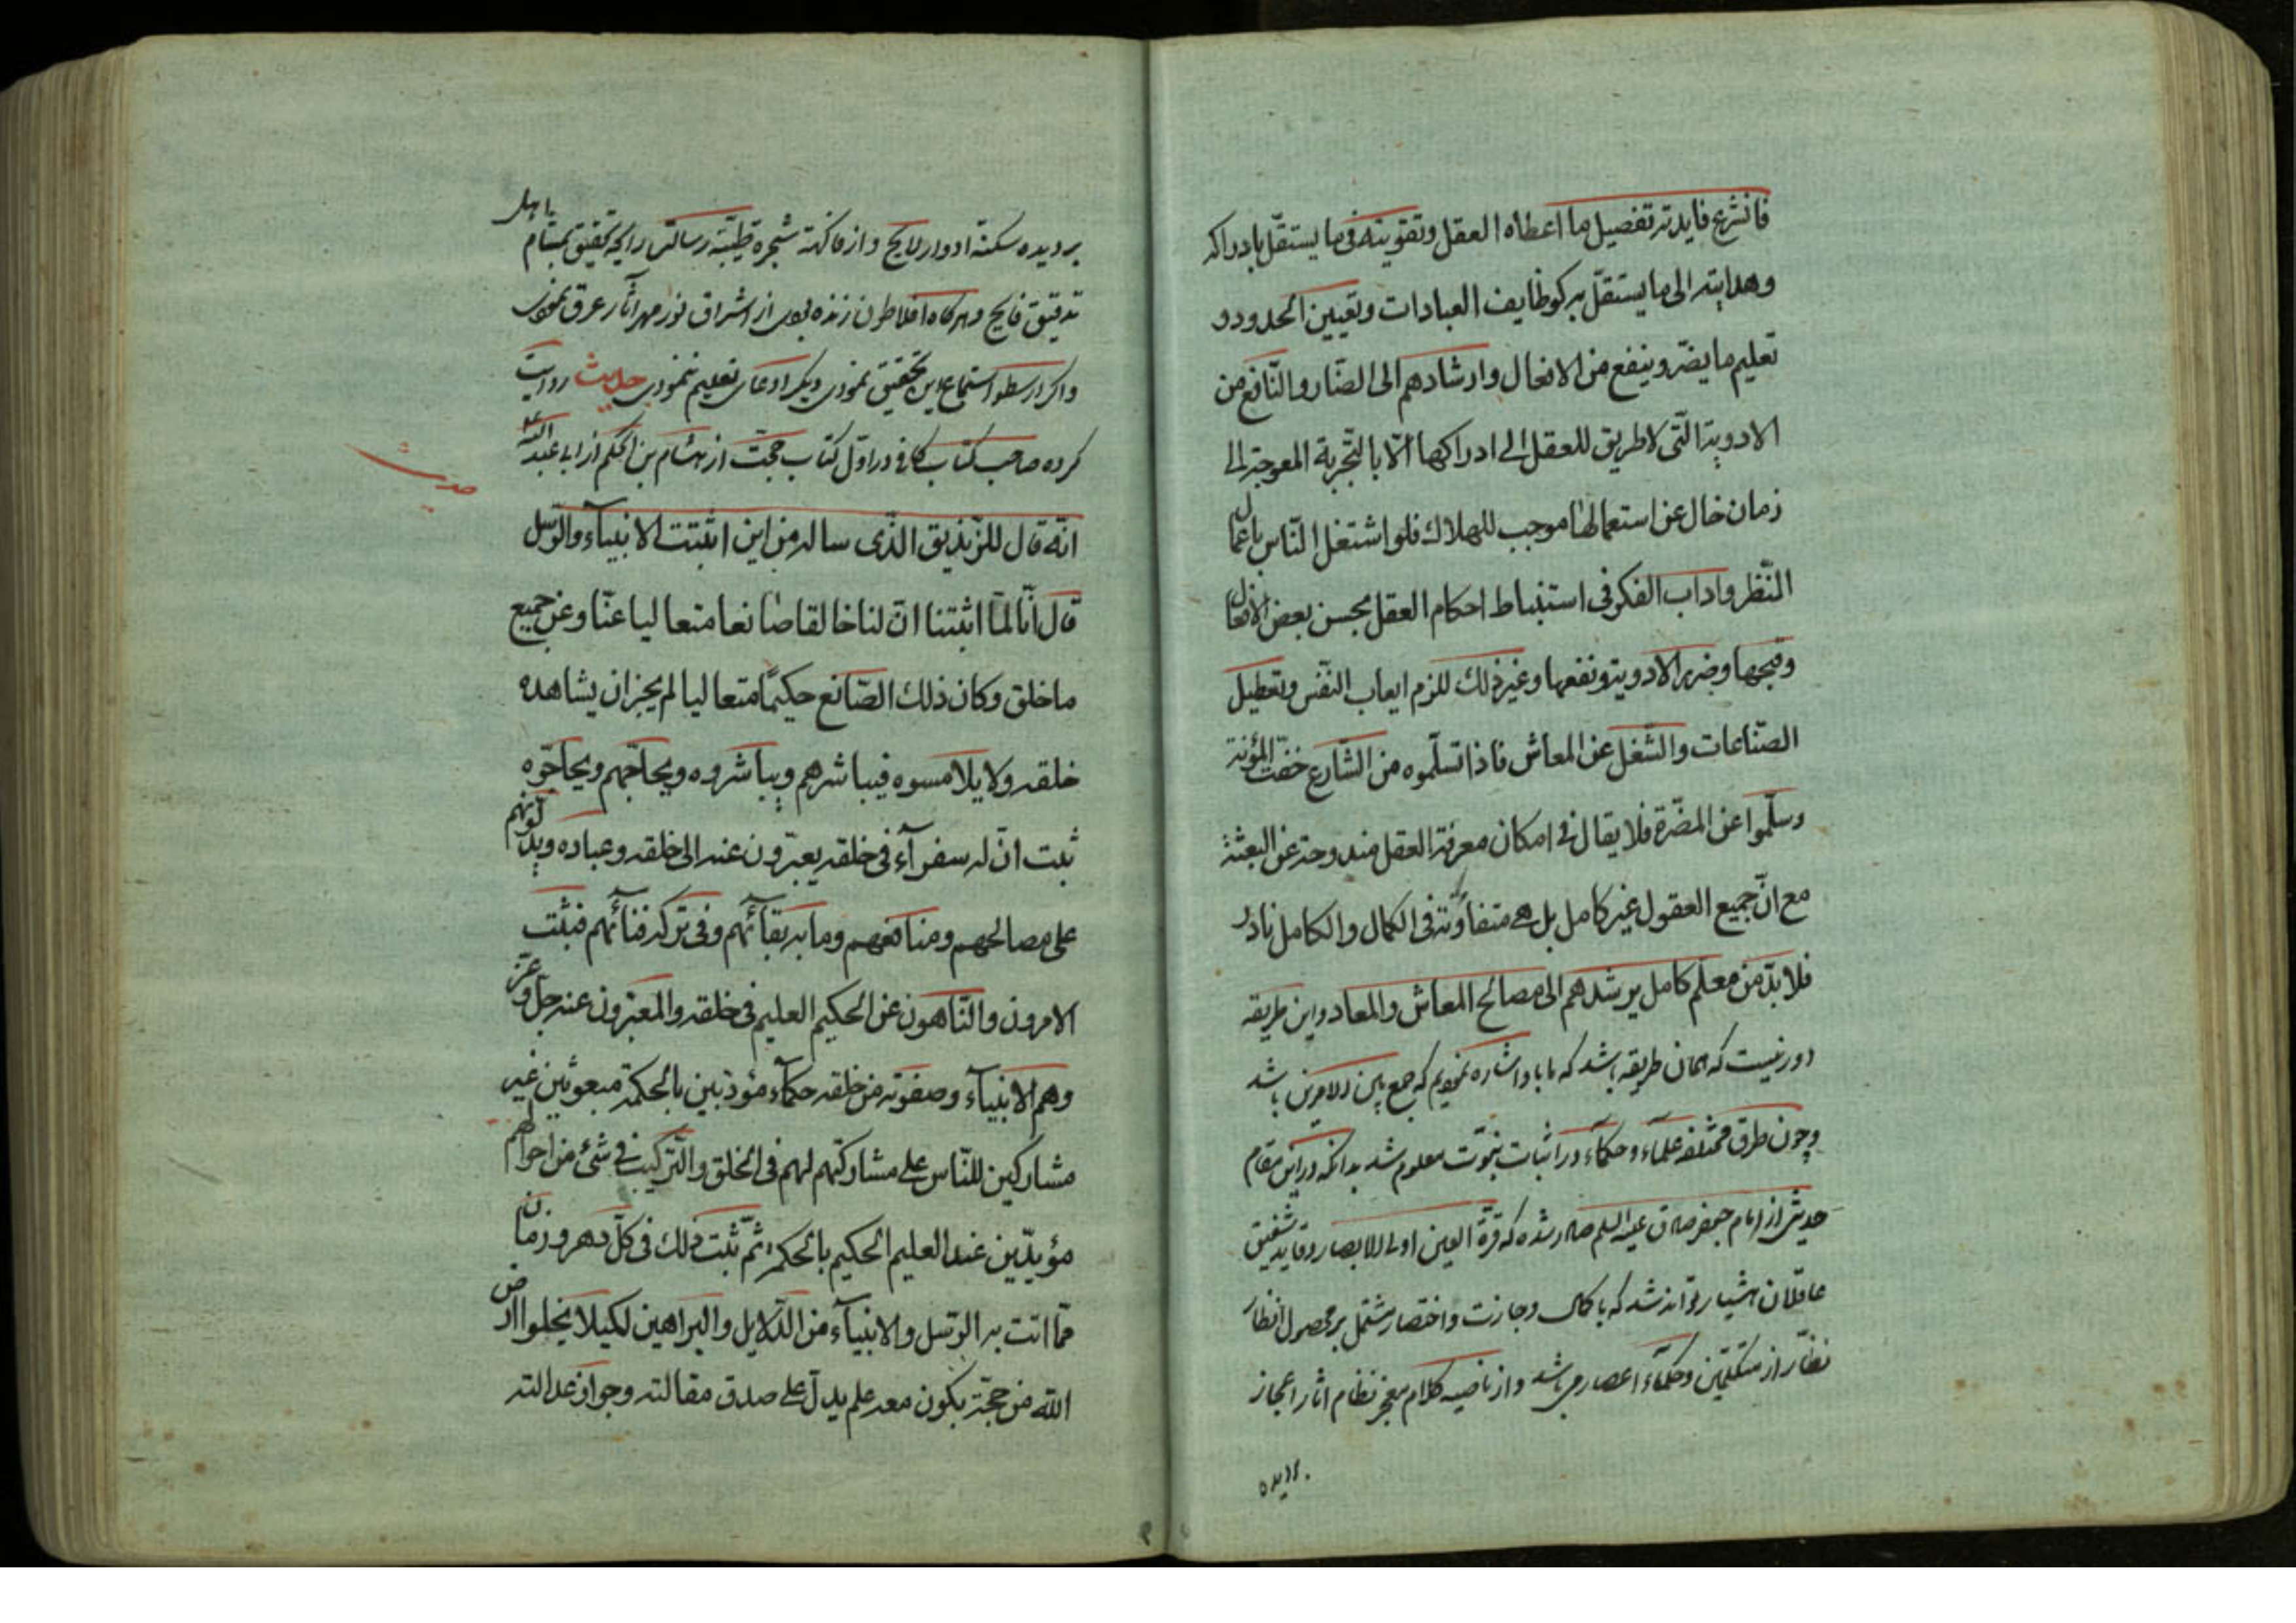 فالشرع فایدته تفصیل ما اعطاه العقل وتقویته فی ما یستقل بادراکه
وهدایته الی ما یستقل به کوظایف العبادات وتعیین الحدود و
تعلیم ما یضر وینفع من الافعال وارشادهم الی الضار والنافع من
الادویة التی لا طریق للعقل الی ادراکها الا بالتجربة المعوجة الی
زمان خال عن استعمالها موجب للهلاک فلو اشتغل الناس باعمال
النظر واداب الفکر فی استنباط احکام العقل بحسن بعض الافعال
وقبحها وضرر الادویة ونفعها وغیر ذلک للزم اتعاب النفس وتعطیل
الصناعات والشغل عن المعاش فاذا تسلموه من الشارع خفت المؤنة
وسلموا عن المضرة فلا یقال فی امکان معرفة العقل مندوحة عن البعثة
مع ان جمیع العقول غیر کامل بل هی متفاوتة فی الکمال والکامل نادر
فلا بد من معلم کامل یرشدهم الی مصالح المعاش والمعاد واین طریقه
دور نیست که همان طریقه باشد که ما باو اشاره نمودیم که جمع بین الامرین باشد
وچون طرق مختلفه علماء وحکماء در اثبات نبوت معلوم شد بدانکه در این مقام
حدیثی از امام جعفر صادق علیه السلم صادر شده که قرة العین اولی الابصار وقاید شفیق
عاقلان هشیار تواند شد که با کمال وجازت واختصار مشتمل بر محصول انظار
نظار از متکلمین وحکماء اعصار می باشد واز ناصیه کلام معجز نظام اثار اعجاز
بر دیده
بر دیده سکنه ادوار لایح واز فاکهة شجره طیبه رسالتش رایحه تحقیق بمشام اهل
تدقیق فایح وهرکاه افلاطون زنده بودی از اشراق نور مهر آثار عرق نمودی
واکر ارسطو استماع این تحقیق نمودی دیکر ادعای تعلیم ننمودی حدیث روایت
کرده صاحب کتاب کافی در اول کتاب حجت از هشام بن الحکم از ابی عبد الله ع
حدیث
انه قال للزندیق الذی ساله من این اثبتت الانبیاء والرسل
قال انا لما اثبتنا ان لنا خالقا صانعا متعالیا عنا وعن جمیع
ما خلق وکان ذلک الصانع حکیما متعالیا لم یجز ان یشاهده
خلقه ولا یلامسوه فیباشرهم ویباشروه ویحاجهم ویحاجوه
ثبت ان له سفرآء فی خلقه یعبرون عنه الی خلقه وعباده ویدلونهم
علی مصالحهم ومنافعهم وما به بقائهم وفی ترکه فنائهم فثبت
الامرون والناهون عن الحکیم العلیم فی خلقه والمعبرون عنه جل وعز
وهم الانبیآء وصفوته من خلقه حکمآء مؤدبین بالحکمة مبعوثین غیر
مشارکین للناس علی مشارکتهم لهم فی الخلق والترکیب فی شئ من احوالهم
مؤیدین عند العلیم الحکیم بالحکمة ثم ثبت ذلک فی کل دهر وزمان
مما اتت به الرسل والانبیآء من الدلایل والبراهین لکیلا یخلوا ارض
الله من حجة یکون معه علم یدل علی صدق مقالته وجواز عدالته